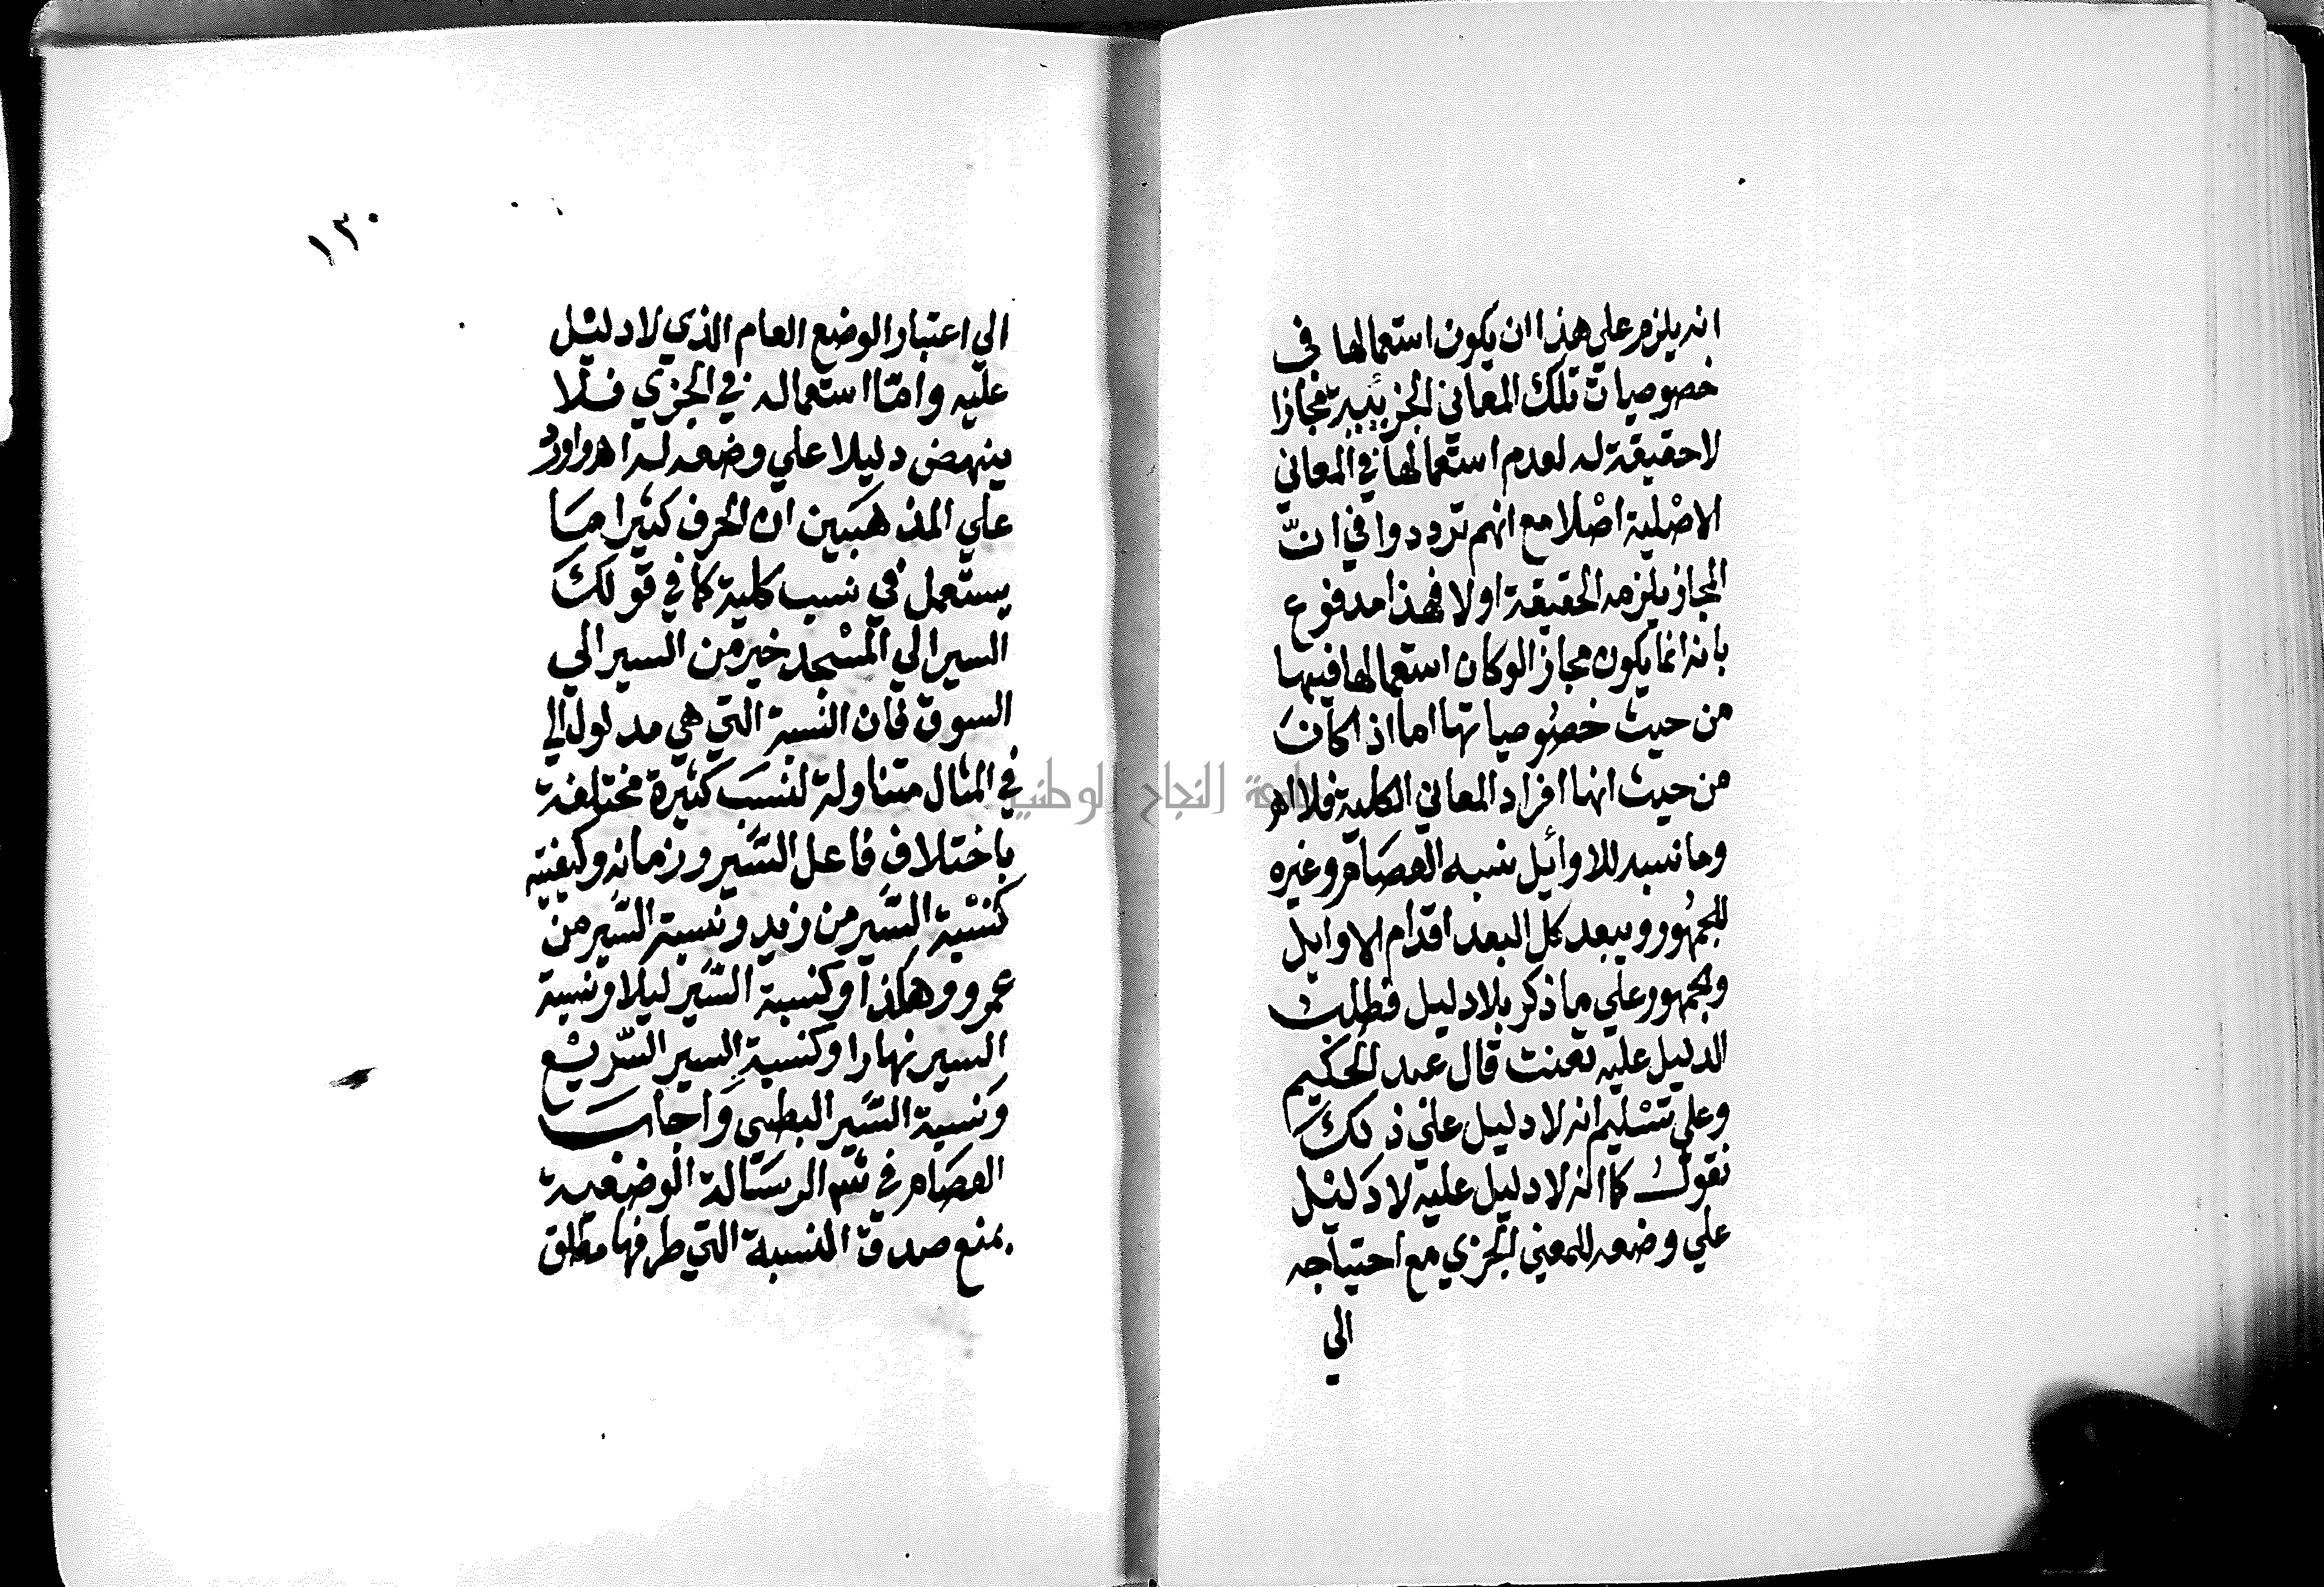 انه يلزم علي هذا ان يكون استعمالها في
خصوصيات تلك المعاني الجزئية مجازا
لا حقيقة له لعدم استعمالها في المعاني
الاصلية اصلا مع انهم ترددوا في ان
المجاز يلزمه الحقيقة اولا فهذا مدفوع
بانه انما يكون مجازا لو كان استعمالها فيها
من حيث خصوصياتها اما اذا كان
من حيث انها افراد المعاني الكلية فلا اهـ
وما نسبه للاوائل نسبه العصام وغيره
للجمهور ويبعد كل البعد اقدام الاوايل
والجمهور علي ما ذكر بلا دليل فطلب
الدليل عليه تعنت قال عبد الحكيم
وعلي تسليم انه لا دليل علي ذلك
نقول كما انه لا دليل عليه لا دليل
علي وضعه للمعني الجزي مع احتياجه
الي
١٣٠
الي اعتبار الوضع العام الذي لا دليل
عليه واما استعماله في الجزي فلا
ينهض دليلا علي وضعه له اهـ واورد
علي المذهبين ان الحرف كثيرا ما
يستعمل في نسب كلية كما في قولك
السير الي المسجد خير من السير الي
السوق فان النسبة التي هي مدلول الي
في المثال متناولة لنسب كثيرة مختلفة
باختلاف فاعل السير وزمانه وكيفيته
كنسبة السير من زيد ونسبة السير من
عمرو وهكذا وكنسبة السير ليلا ونسبة
السير نهارا وكنسبة السير السريع
ونسبة السير البطيي واجاب
العصام في شم الرسالة الوضعية
بمنع صدق النسبة التي طرفها مطلق
جامعة النجاح الوطنية